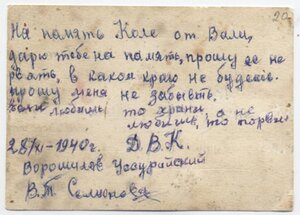 20
На память Коле от Вали,
дарю тебе на память, прошу ее не
рвать, в каком краю не будешь.
прошу меня не забывть.
если любишь, то храни а не
любишь, то порви
28/XI-1940г. Д.В.К.
Ворошилов Уссурийский
В.Т.